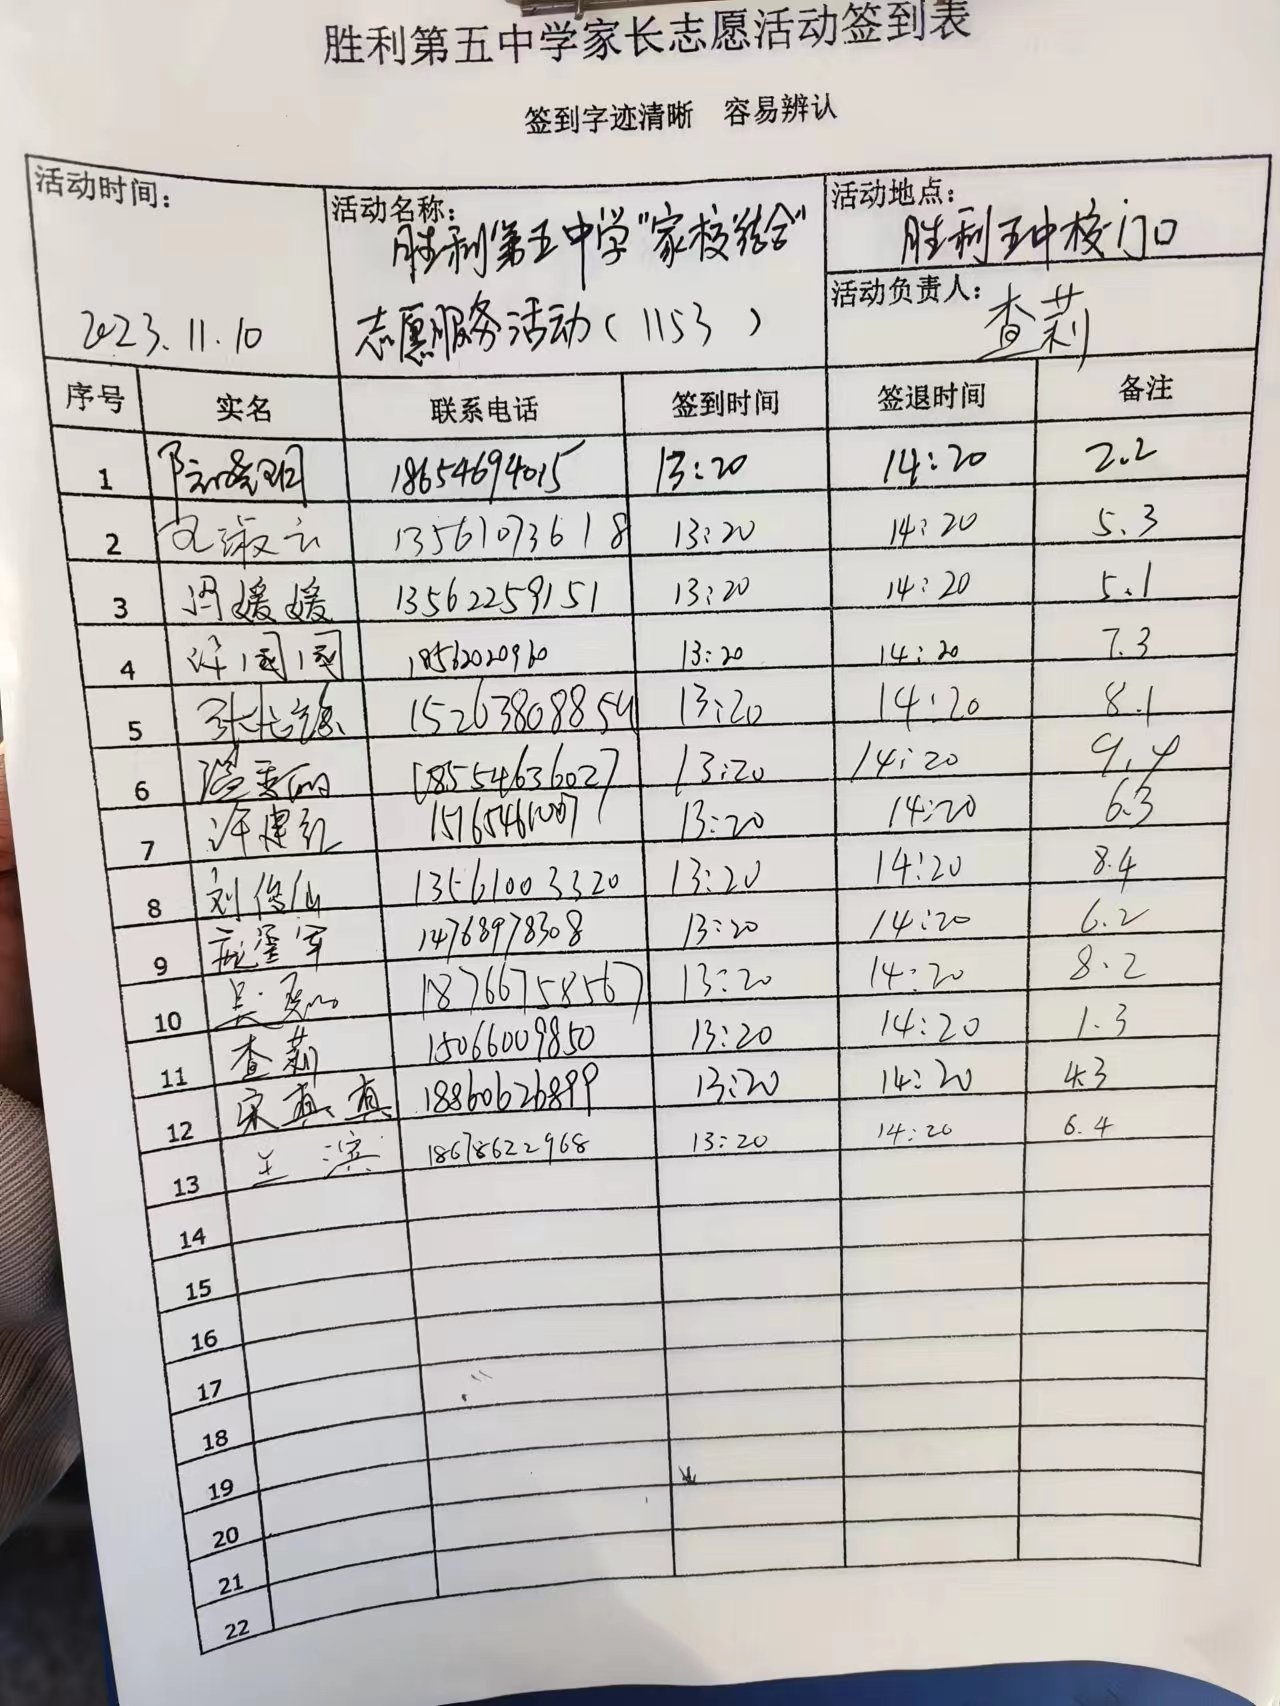 胜利第五中学家长志愿活动签到表
签到字迹清晰 容易辨认
活动时间： 活动名称： 活动地点：
胜利第五中学"家校结合" 胜利五中校门口
活动负责人：
2023.11.10 志愿服务活动（1153） 查莉
序号 实名 联系电话 签到时间 签退时间 备注
1 18654694015 13:20 14:20 2.2
2 13561073618 13:20 14:20 5.3
3 媛媛 13562259151 13:20 14:20 5.1
4 许国国 18562020960 13:20 14:20 7.3
5 15263808854 13:20 14:20 8.1
6 18554636027 13:20 14:20 9.4
7 许建红 13:20 14:20 6.3
8 刘俊仙 13561003320 13:20 14:20 8.4
9 14768978308 13:20 14:20 6.2
10 吴 18766758567 13:20 14:20 8.2
11 查莉 15066009850 13:20 14:20 1.3
12 宋真真 18860626899 13:20 14:20 4.3
13 王滨 18678622968 13:20 14:20 6.4
14
15
16
17
18
19
20
21
22